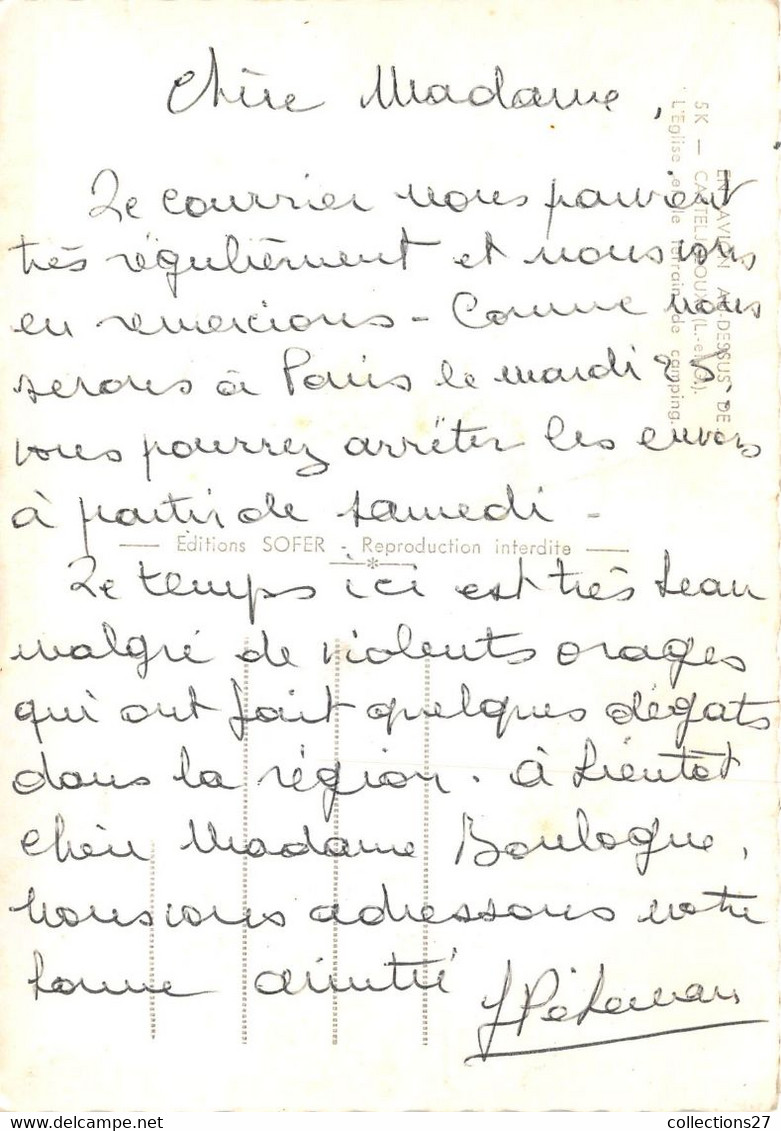 Chère Madame,
Le courrier nous parvient
très régulièrement et nous vous
en remercions - Comme nous
serons à Paris le mardi 25.
vous pourrez arrêter les envois
à partir de samedi -
Editions SOFER - Reproduction interdite
Le temps ici est très beau
malgré de violents orages
qui ont fait quelques dégats
dans la région. à bientôt
chère Madame Boulogne,
nous vous adressons notre
bonne amitié
EN AVION AU-DESSUS DE
5K — CASTELJALOUX (L.-et-G.)
L'Eglise et le terrain de camping.
collections27